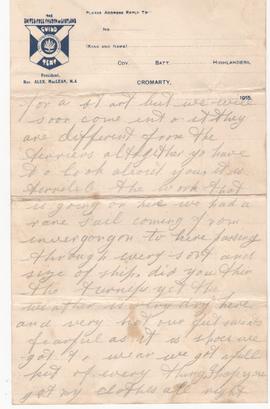 PLEASE ADDRESS REPLY TO—
THE
UNITED FREE CHURCH OF SCOTLAND
GUILD
TENT
No.
(RANK AND NAME)
COY. BATT. HIGHLANDERS,
President,
REV. ALEX. MACLEAN, M.A
CROMARTY, 1915.
for a bit but we will
soon come into it they
are different from the
terriers altogether yo have
to look about your it is
terrible the work that
is going on here we had a
rare sail coming from
invergorgon to here passing
through every sort and
size of ship. did you thin
the turneps yet the
weather is very dry here
and very hot our feet is
fearful as it is shoes we
got to wear we got a full
set of every thing hope you
got my clothes all right